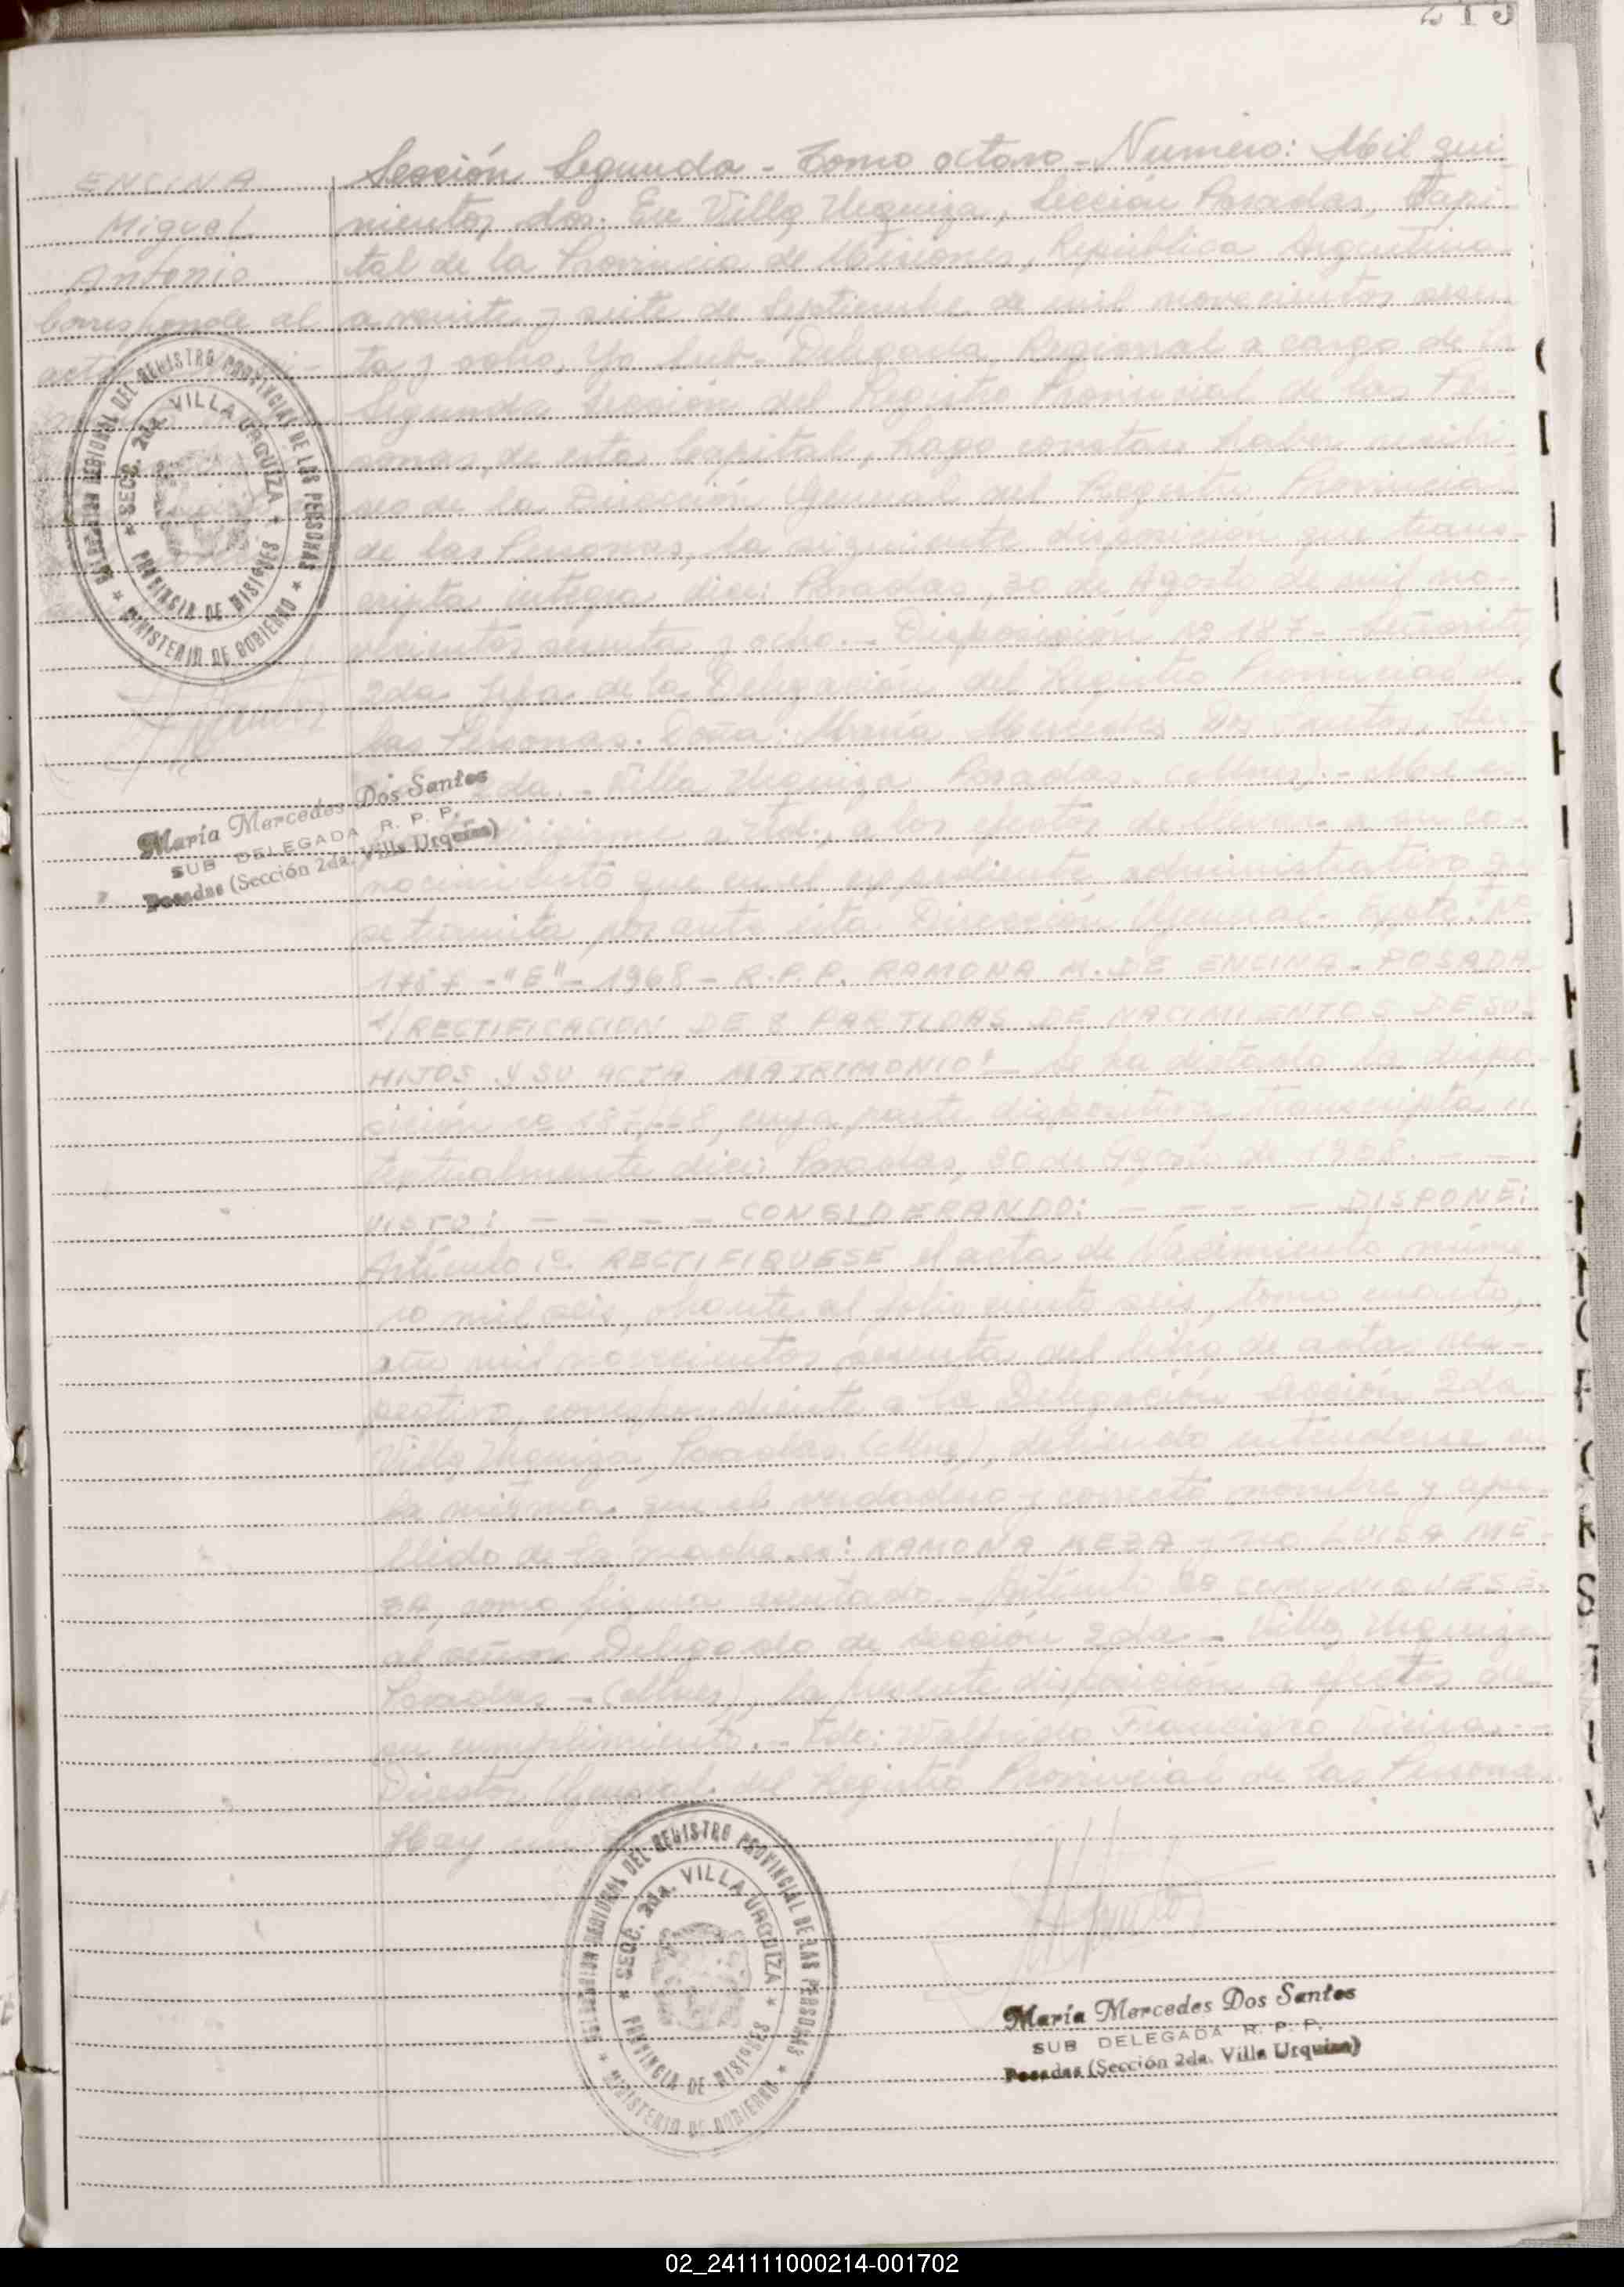 215
ENCINA
Miguel
Antonio
Corresponde al
acta
Sección Segunda - Tomo octavo - Número: Mil qui
nientos dos. En Villa Urquiza, Sección Posadas, Capi
tal de la Provincia de Misiones, República Argentina
a veinte y siete de Septiembre de mil novecientos sesen
ta y ocho, Yo Sub-Delegada Regional a cargo de la
Segunda Sección del Registro Provincial de las Per-
sonas, de esta Capital, hago constar haber recibi
do de la Dirección General del Registro Provincial
de las Personas, la siguiente disposición que trans-
cripta íntegra dice: Posadas, 30 de Agosto de mil no-
vecientos sesenta y ocho. - Disposición no 187 - Señorita
2da Jefa de la Delegación del Registro Provincial de
las Personas. Doña: María Mercedes Dos Santos, Sec-
2da. - Villa Urquiza Posadas. (Mnes). -
a Ud., a los efectos de llevar a su co-
nocimiento que en el expediente administrativo que
se tramita por ante esta Dirección General - Expte. No
1787 - "E" - 1968 - R.P.P. RAMONA M. DE ENCINA - POSADA
S/ RECTIFICACION DE 8 PARTIDAS DE NACIMIENTOS DE SUS
HIJOS Y SU ACTA MATRIMONIO" - Se ha dictado la dispo-
sición no 187/68, cuya parte dispositiva transcripta
textualmente dice: Posadas, 30 de Agosto de 1968. - -
VISTO: - - - - CONSIDERANDO: - - - - DISPONE:
Artículo 1o RECTIFIQUESE el acta de Nacimiento núme
ro mil seis, obrante al folio ciento seis, tomo cuarto,
año mil novecientos sesenta del libro de actas res-
pectivo, correspondiente a la Delegación Sección 2da
Villa Urquiza, Posadas (Mnes), debiendo entenderse en
la misma que el verdadero y correcto nombre y ape-
llido de la madre es: RAMONA MEZA y no LUISA ME-
ZA, como figura asentado. - Artículo COMUNIQUESE
al señor Delegado de sección 2da - Villa Urquiza
Posadas - (Mnes), la presente disposición a efectos de
su cumplimiento. - Fdo: Walfrido Francisco Vieira. -
Director General del Registro Provincial de las Persona
Hay un
DELEGACION REGIONAL DEL REGISTRO PROVINCIAL DE LAS PERSONAS
SECC. 2da. VILLA URQUIZA
PROVINCIA DE MISIONES
MINISTERIO DE GOBIERNO
María Mercedes Dos Santos
SUB DELEGADA R. P. P.
Posadas (Sección 2da. Villa Urquiza)
DELEGACION REGIONAL DEL REGISTRO PROVINCIAL DE LAS PERSONAS
SECC. 2da. VILLA URQUIZA
PROVINCIA DE MISIONES
MINISTERIO DE GOBIERNO
María Mercedes Dos Santos
SUB DELEGADA R. P. P.
Posadas (Sección 2da. Villa Urquiza)
02_241111000214-001702